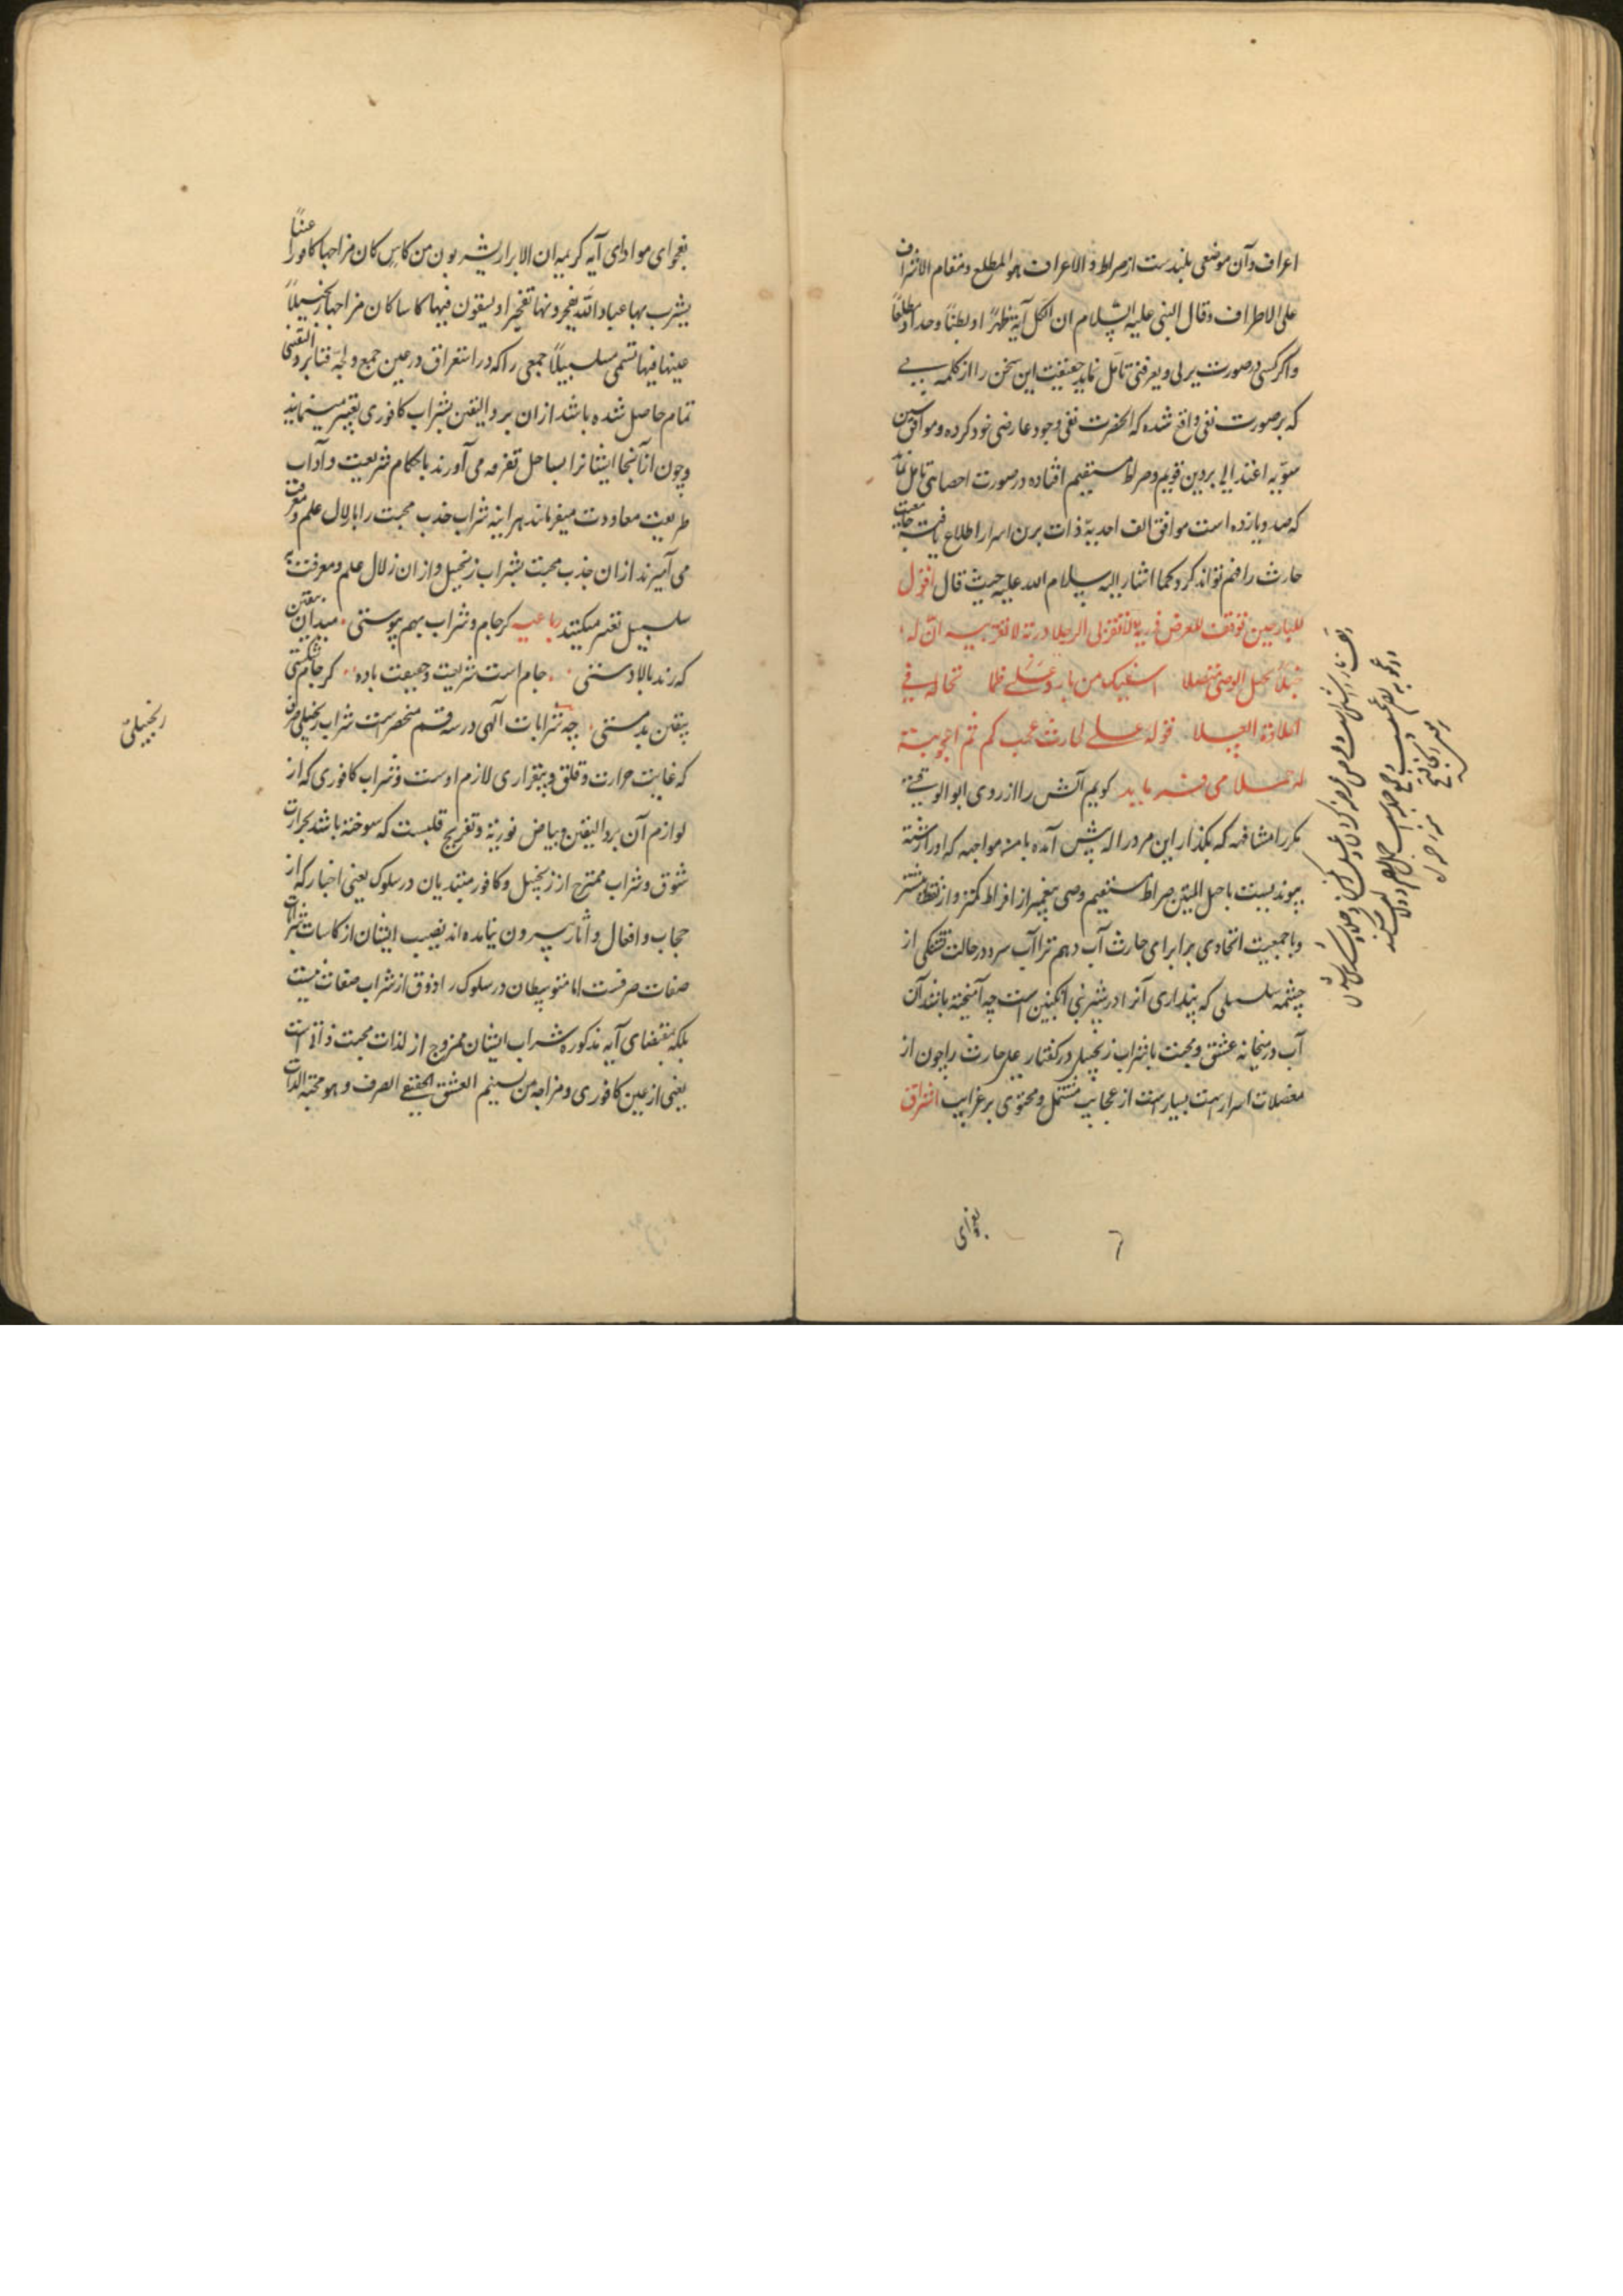 اعراف وآن موضعی بلندست از صراط و الاعراف هو المطلع و مقام الاشراف
علی الاطراف وقال النبی علیه السلام ان لکل آیة ظهرًا و بطنًا وحدا ومطلعًا
واکر کسی در صورت یرنی ویعرفنی تامل نماید حقیقت این سخن را از کلمه
که بر صورت نفی واقع شده که انحضرت نفی وجود عارضی خود کرده وموافق
سویه اعتدالی بر دین قویم وصراط مستقیم افتاده در صورت احصای تامل نماید
که صد ویازده است موافق الف احدیه ذات برین اسرار اطلاع یافته
حارث را فهم تواند کرد وکما اشار الیه سلام الله علیه حیث قال اقول
للنار حین توقف للعرض ذریه لا تقربی الرجلا ذریه لا تقربیه ان له
حبلًا بحبل الوصی متصلا اسقیک من بارد علی ظما تخاله فی
الحلاوة العسلا قول علی لحارث عجب کم ثم اعجوبة
له حملا می فرماید کویم آتش را از روی
مکرر امشافهه که بکذار این مرد را که پیش آمده با منت مواجهه که او را رشته
پیوندیست با حبل المتین صراط مستقیم وصی پیغمبر از افراط کمتر واز نقطه
وبا جمعیت اتحادی برابر ای حارث آب دهم ترا آب سرد در حالت تشنکی از
چشمه سلسبیلی که پنداری آنرا در شیرینی انکبین است چه آمیخته باشد آن
آب در میخانه عشق ومحبت با شراب زنجبیلی در کفتار علی حارث را چون از
معضلات اسرار است بسیار است از عجایب مشتمل ومحتوی بر غرایب اشراق
بفحوای
بفحوای مودای آیه کریمه ان الابرار یشربون من کاس کان مزاجها کافورا عینًا
یشرب بها عباد الله یفجرونها تفجیرا و یسقون فیها کاسا کان مزاجها زنجبیلًا
عینها فیها تسمی سلسبیلًا جمعی را که در استغراق در عین جمع ولجه فنا برد الیقین
تمام حاصل شده باشد از ان برد الیقین بشراب کافوری تعبیر مینمایند
وچون از آنجا ایشانرا بساحل تفرقه می آورند باحکام شریعت وآداب
طریقت معاودت میفرمایند هر اینه شراب جذب محبت را با زلال علم ومعرفت
می آمیزند از ان جذب محبت بشراب زنجبیل واز ان زلال علم ومعرفت به
سلسبیل تعبیر میکنند رباعیه کر جام وشراب بهم پیوستی میدان بیقین
که رند بالا دستی جام است شریعت وحقیقت باده کر جام شکستی
بیقین بدمستی چه شرابات الهی در سه قسم منحصر است شراب زنجبیلی صرف
که غایت حرارت وقلق وبیقراری لازم اوست وشراب کافوری که از
لوازم آن برد الیقین وبیاض نوریه وتفریح قلبست که سوخته باشد بحرارت
شوق وشراب ممتزج از زنجبیل وکافور مبتدیان در سلوک یعنی اخیار که از
حجاب وافعال واثار بیرون نیامده اند نصیب ایشان از کاسات شرابات
صفات صرفست اما متوسطان در سلوک را ذوق از شراب صفات نیست
بلکه بمقتضای آیه مذکوره شراب ایشان ممزوج از لذات محبت ذاتی است
یعنی از عین کافوری ومزاجه من تسنیم العشق الحقیقی الصرف وهو محبة الذات
زنجبیلی